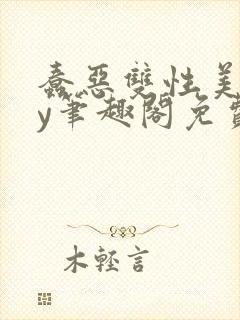 蠢惡雙性美
y筆趣閣免費
木輕言